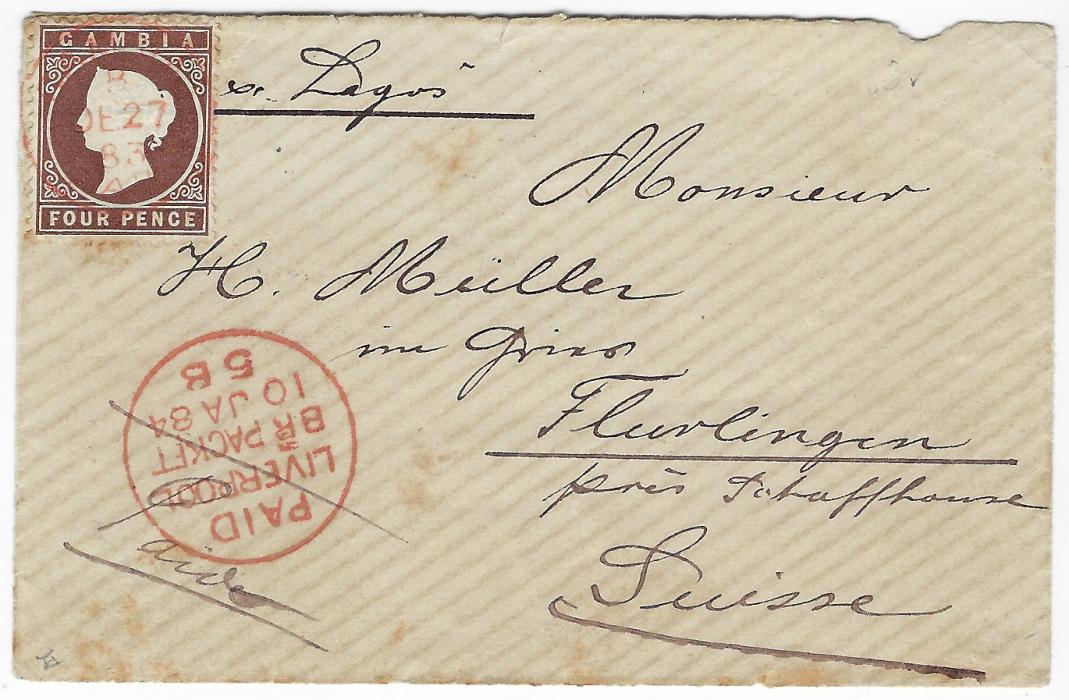 GAMBIA
B
DE 27
83
A
FOUR PENCE
Lagos
Monsieur
H. Müller
im Gries
Flurlingen
près Schaffhouse
Suisse
PAID
LIVERPOOL
BR PACKET
10 JA 84
5B